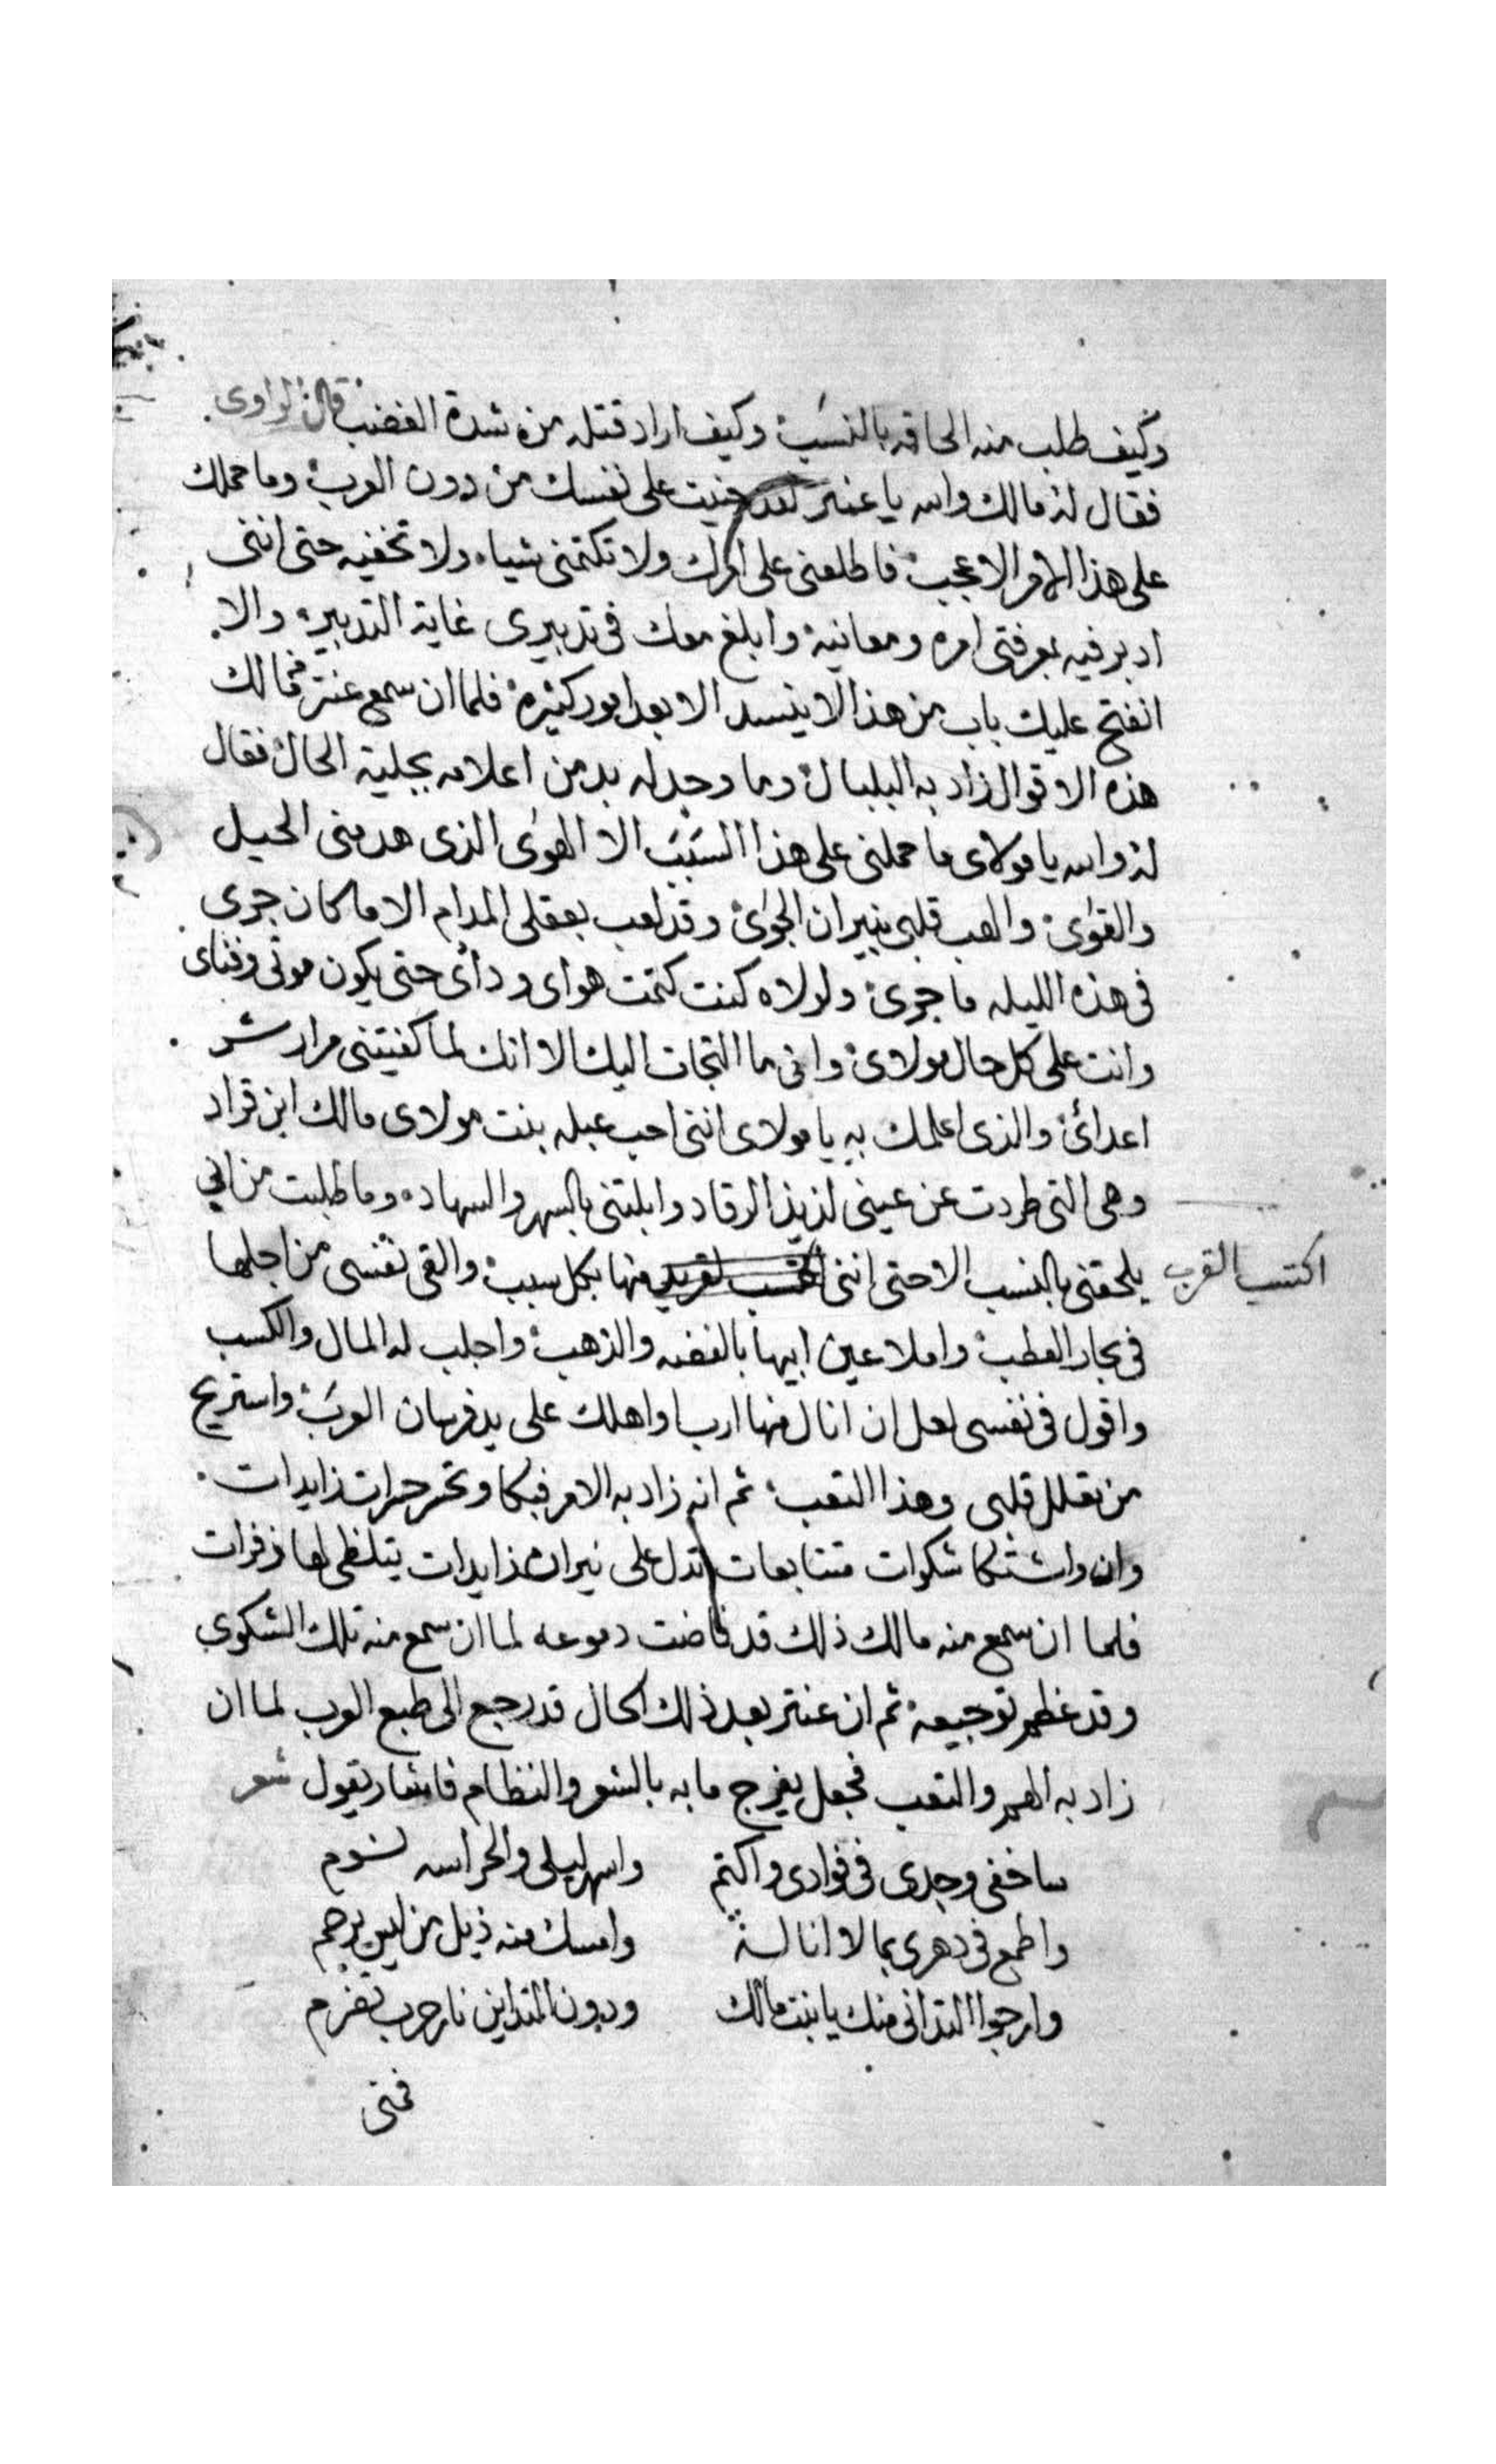 وكيف طلب منه الحاقه بالنسب وكيف اراد قتله من شدة الغضب قال الراوى
فقال له مالك والله يا عنتر لقد جنيت على نفسك من دون العرب وما حملك
على هذا الامر الاعجب فاطلعنى على امرك ولا تكتمنى شياء ولا تخفيه حتى اننى
ادبر فيه بمعرفتى امره ومعانيه وابلغ معك فى تدبيرى غاية التدبير والا
انفتح عليك باب من هذا لا ينسد الا بعد امور كثيرة فلما ان سمع عنتر من مالك
هذه الاقوال زاد به البلبال وما وجد له بد من اعلامه بجلية الحال فقال
له والله يا مولاى ما حملنى على هذا السبب الا الهوى الذى هد منى الحيل
والقوى والهب قلبى بنيران الجوى وقد لعب بعقلى المدام الا ما كان جرى
فى هذه الليله ما جرى ولولاه كنت كتمت هواى ودأى حتى يكون موتى وفناى
وانت على كل حال مولاى وانى ما التجات اليك الا انك لما كفيتنى مرار شر
اعدائ والذى اعلمك به يا مولاى اننى احب عبله بنت مولاى مالك ابن قراد
وهى التى طردت عن عينى لذيذ الرقاد وابلتنى بالسهر والسهاد وما طلبت من ابى
يلحقنى بالنسب الا حتى اننى منها بكل سبب والقى نفسى من اجلها
اكتسب القرب
فى بحار العطب واملا عين ابيها بالفضه والذهب واجلب له المال والكسب
واقول فى نفسى لعل ان انال منها ارب او اهلك على يد فرسان العرب واستريح
من تقلل قلبى وهذا التعب ثم انه زاد به الامر فبكا وتحسر حسرات زايدات
وان واشتكا شكوات متتابعات تدل على نيران زايدات يتلظى لها زفرات
فلما ان سمع منه مالك ذلك قد فاضت دموعه لما ان سمع منه تلك الشكوى
وقد عظم توجيعه ثم ان عنتر بعد ذلك الحال قد رجع الى طبع العرب لما ان
زاد به الهم والتعب فجعل يفرج ما به بالشعر والنظام فاشار يقول شعر
ساخفى وجدى فى فوادى واكتم واسهر ليلى والحراسه نوم
واطمع فى دهرى بما لا اناله وامسك منه ذيل من ليس يرحم
وارجوا التدانى منك يا بنت مالك ودون التدانى نار حرب تضرم
فمنى